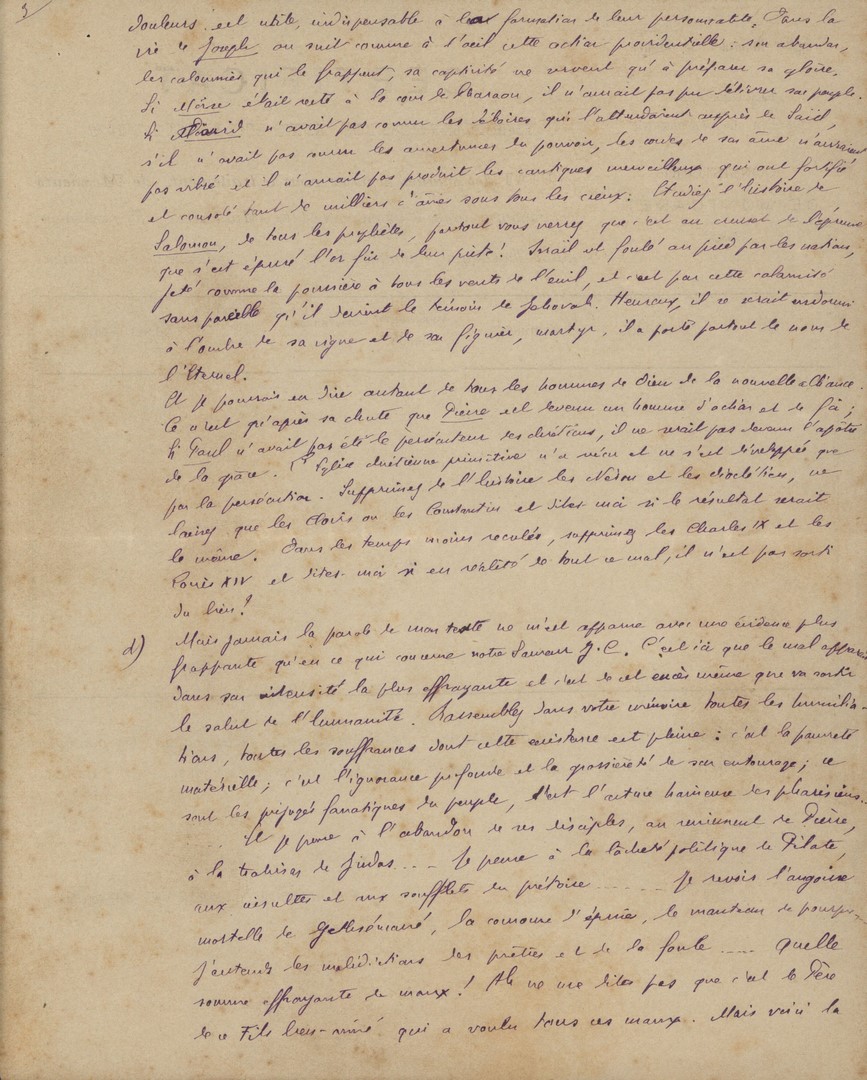 3
douleurs est utile, indispensable à la formation de leur personnalité. Dans la
vie de Joseph on suit comme à l'œil cette action providentielle : son abandon,
les calomnies qui le frappent, sa captivité ne servent qu'à préparer sa gloire.
Si Moïse était resté à la cour de Pharaon, il n'aurait pas pu délivrer son peuple.
Si David n'avait pas connu les déboires qui l'attendaient auprès de Saül,
s'il n'avait pas les amertumes du pouvoir, les cordes de son âme n'auraient
pas vibré et il n'aurait pas produit les cantiques merveilleux qui ont fortifié
et consolé tant de milliers d'âmes sous tous les cieux. Etudiez l'histoire de
Salomon, de tous les prophètes, partout vous verrez que c'est au creuset de l'épreuve
que s'est épuré l'or fin de leur piété ! Israël est foulé au pied par les nations,
jeté comme la poussière à tous les vents de l'exil, et c'est par cette calamité
sans pareille qu'il devient le témoin de Jéhovah. Heureux, il se serait endormi
à l'ombre de sa vigne et de son figuier, martyr, il a porté partout le nom de
l'Eternel.
Et je pourrais en dire autant de tous les hommes de Dieu de la nouvelle alliance.
Ce n'est qu'après sa chute que Pierre est devenu un homme d'action et de foi ;
Si Paul n'avait pas été le persécuteur des chrétiens, il ne serait pas devenu l'apôtre
de la grâce. L'Eglise chrétienne primitive n'a vécu et ne s'est développée que
par la persécution. Supprimez de l'histoire les Néron et les Dioclétien, ne
laissez que les Clovis ou les Constantin et dites-moi si le résultat serait
le même. Dans les temps moins reculés, supprimez les Charles IX et les
Louis XIV et dites-moi si en réalité de tout ce mal, il n'est pas sorti
du bien !
d) Mais jamais la parole de mon texte ne m'est apparue avec une évidence plus
frappante qu'en ce qui concerne notre Sauveur J. C. C'est ici que le mal apparaît
dans son intensité la plus effrayante et c'est de cet excès même que va sortir
le salut de l'humanité. Rassemblez dans votre mémoire toutes les humilia-
tions, toutes les souffrances dont cette existence est pleine : c'est la pauvreté
matérielle ; c'est l'ignorance profonde et la grossièreté de son entourage ; ce
sont les préjugés fanatiques du peuple, c'est l'astuce haineuse des pharisiens...
.... Et je pense à l'abandon de ses disciples, au reniement de Pierre,
à la trahison de Judas .... Je pense à la lâcheté politique de Pilate,
aux insultes et aux soufflets du prétoire ....... Je revois l'angoisse
mortelle de Gethsémané, la couronne d'épine, le manteau de pourpre...
j'entends les malédictions des prêtres et de la foule .... Quelle
somme effrayante de maux ! Ah ne me dites pas que c'est le Père
de ce Fils bien-aimé qui a voulu tous ces maux. Mais voici la